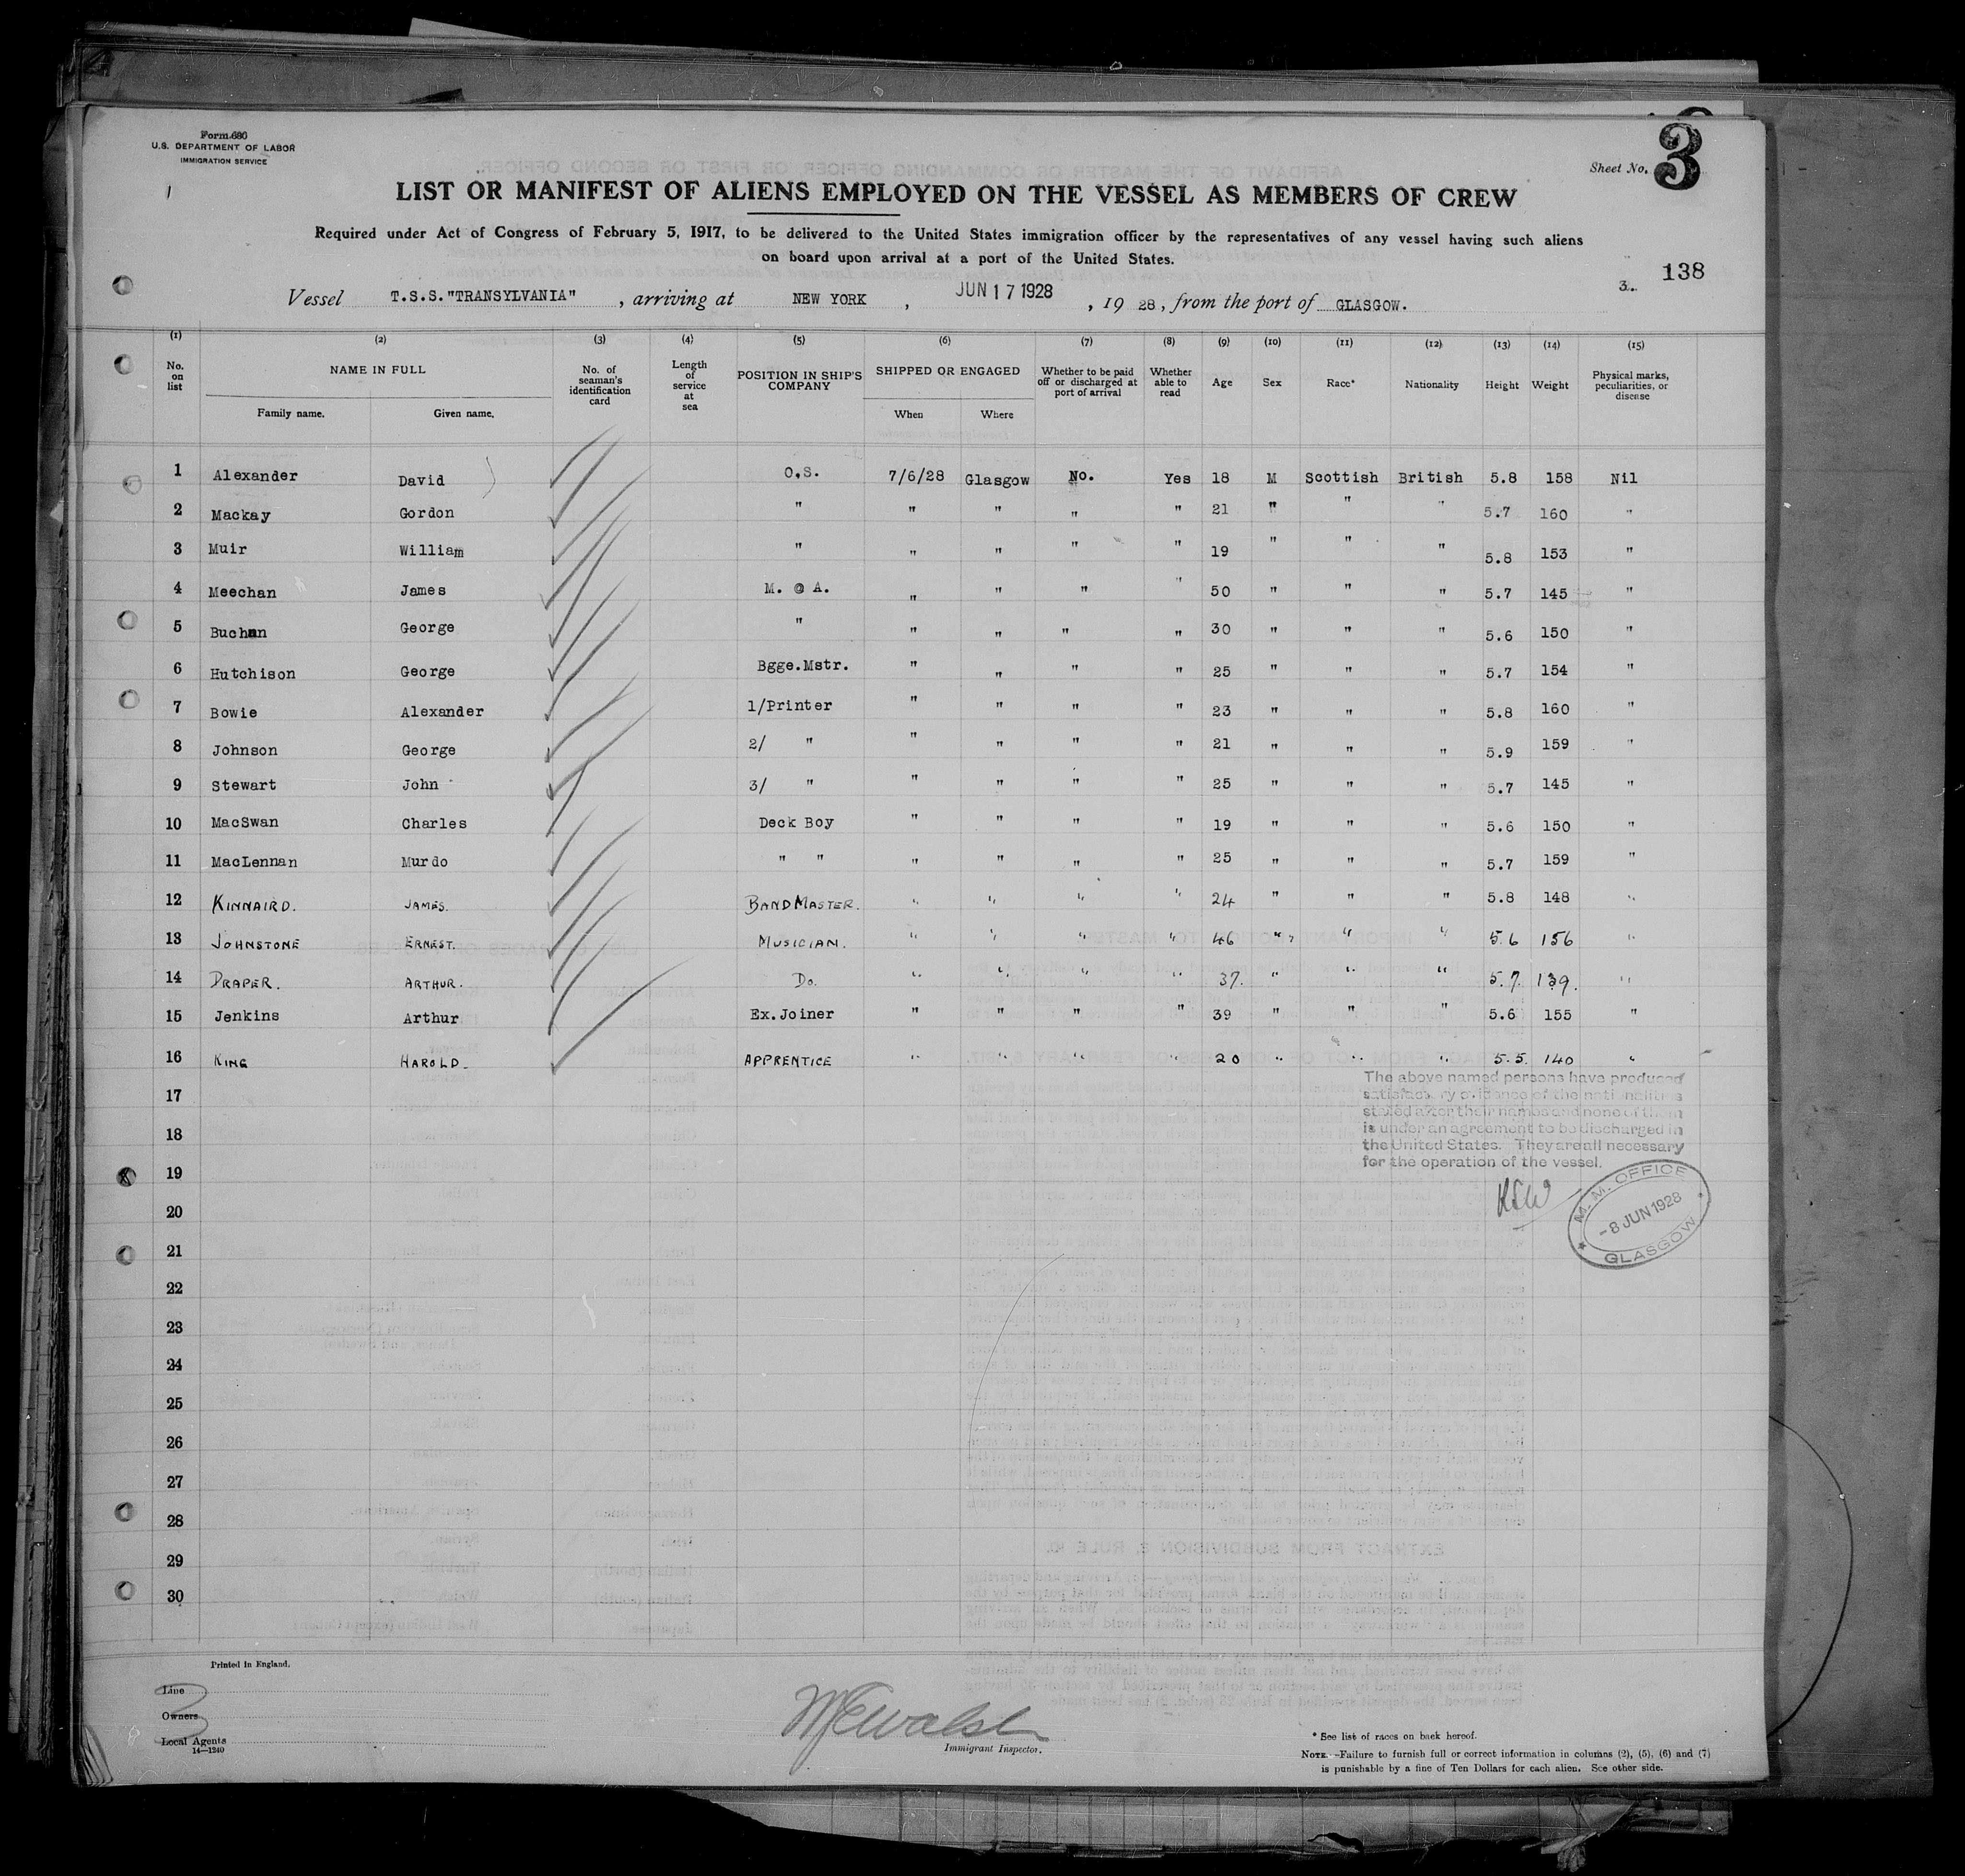 Form 680
U.S. DEPARTMENT OF LABOR
IMMIGRATION SERVICE
Sheet No. 3
LIST OR MANIFEST OF ALIENS EMPLOYED ON THE VESSEL AS MEMBERS OF CREW
Required under Act of Congress of February 5, 1917, to be delivered to the United States immigration officer by the representatives of any vessel having such aliens
on board upon arrival at a port of the United States.
3. 138
Vessel T.S.S."TRANSYLVANIA" , arriving at NEW YORK , JUN 17 1928 , 19 28, from the port of GLASGOW.
(1) (2) (3) (4) (5) (6) (7) (8) (9) (10) (11) (12) (13) (14) (15)
No. on list NAME IN FULL Family name. Given name. No. of seaman's identification card Length of service at sea POSITION IN SHIP'S COMPANY SHIPPED OR ENGAGED When Where Whether to be paid off or discharged at port of arrival Whether able to read Age Sex Race* Nationality Height Weight Physical marks, peculiarities, or disease
1 Alexander David O.S. 7/6/28 Glasgow No. Yes 18 M Scottish British 5.8 158 Nil
2 Mackay Gordon " " " " " 21 " " " 5.7 160 "
3 Muir William " " " " " 19 " " " 5.8 153 "
4 Meechan James M. @ A. " " " " 50 " " " 5.7 145 "
5 Buchan George " " " " " 30 " " " 5.6 150 "
6 Hutchison George Bgge.Mstr. " " " " 25 " " " 5.7 154 "
7 Bowie Alexander 1/Printer " " " " 23 " " " 5.8 160 "
8 Johnson George 2/ " " " " " 21 " " " 5.9 159 "
9 Stewart John 3/ " " " " " 25 " " " 5.7 145 "
10 MacSwan Charles Deck Boy " " " " 19 " " " 5.6 150 "
11 MacLennan Murdo " " " " " " 25 " " " 5.7 159 "
12 KINNAIRD. JAMES. BANDMASTER. " " " " 24 " " " 5.8 148 "
13 JOHNSTONE ERNEST. MUSICIAN. " " " " 46 " " " 5.6 156 "
14 DRAPER. ARTHUR. Do. " " " " 37. " " " 5.7. 139. "
15 Jenkins Arthur Ex.Joiner " " " " 39 " " " 5.6 155 "
16 KING HAROLD. APPRENTICE " " " " 20 " " " 5.5. 140 "
The above named persons have produced
satisfactory evidence of the nationalities
stated after their names and none of them
is under an agreement to be discharged in
the United States. They are all necessary
for the operation of the vessel.
17
18
19
20
M. M. OFFICE
-8 JUN 1928
GLASGOW
21
22
23
24
25
26
27
28
29
30
Printed in England.
Line
Owners
Local Agents
14—1240
Immigrant Inspector.
* See list of races on back hereof.
NOTE.—Failure to furnish full or correct information in columns (2), (5), (6) and (7)
is punishable by a fine of Ten Dollars for each alien. See other side.